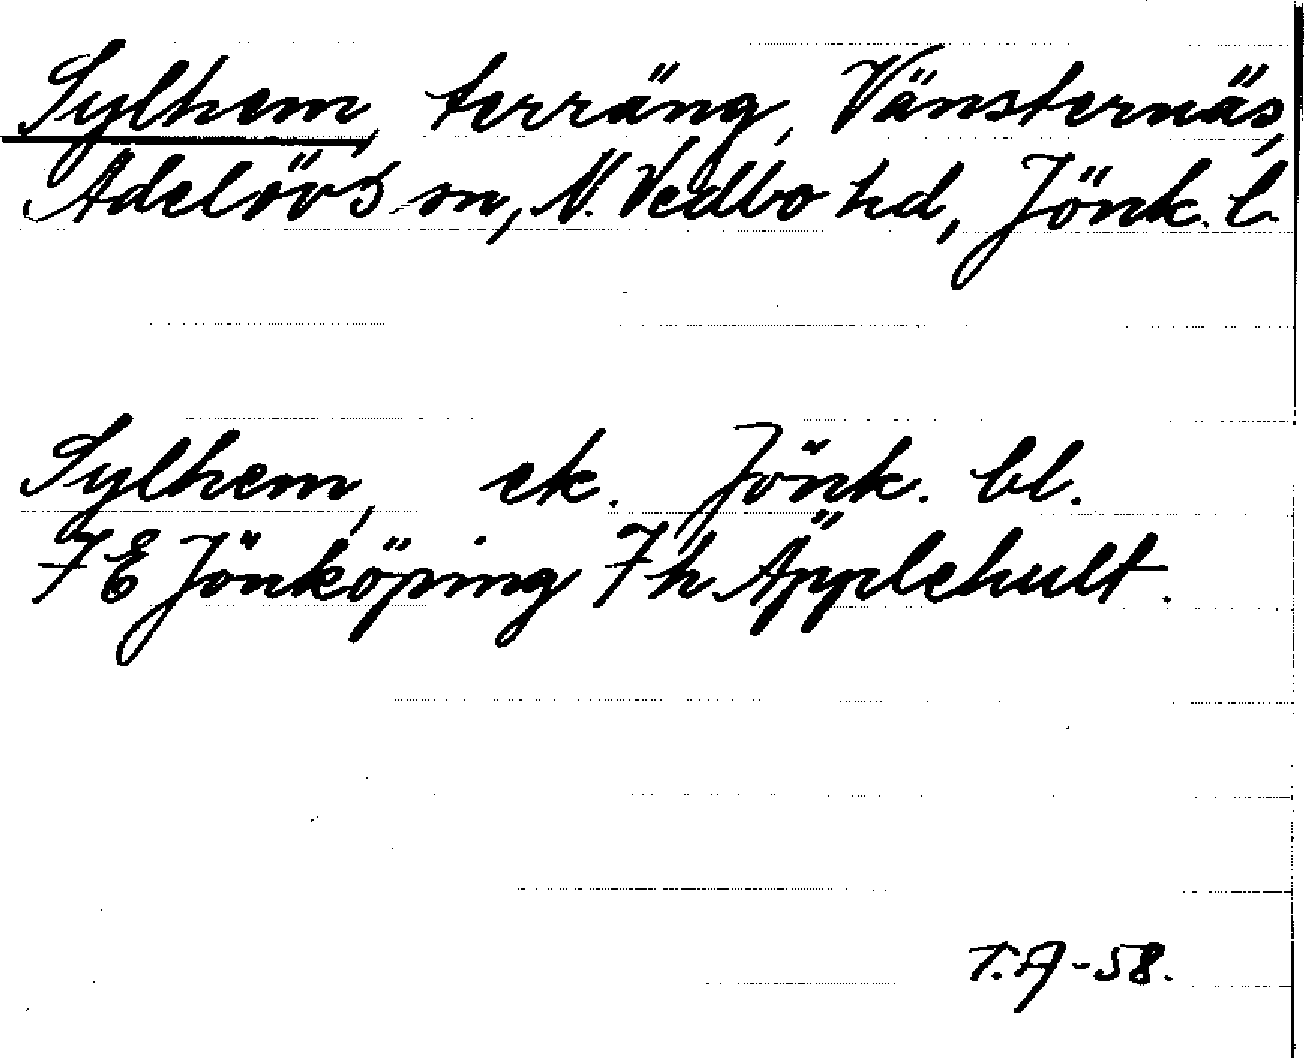 Sylhem, terräng, Vänsternäs,
Adelövs sn, N. Vedbo hd, Jönk. l.
Sylhem, ek. Jönk. bl.
7 E Jönköping 7 h Äpplehult.
T.A-58.